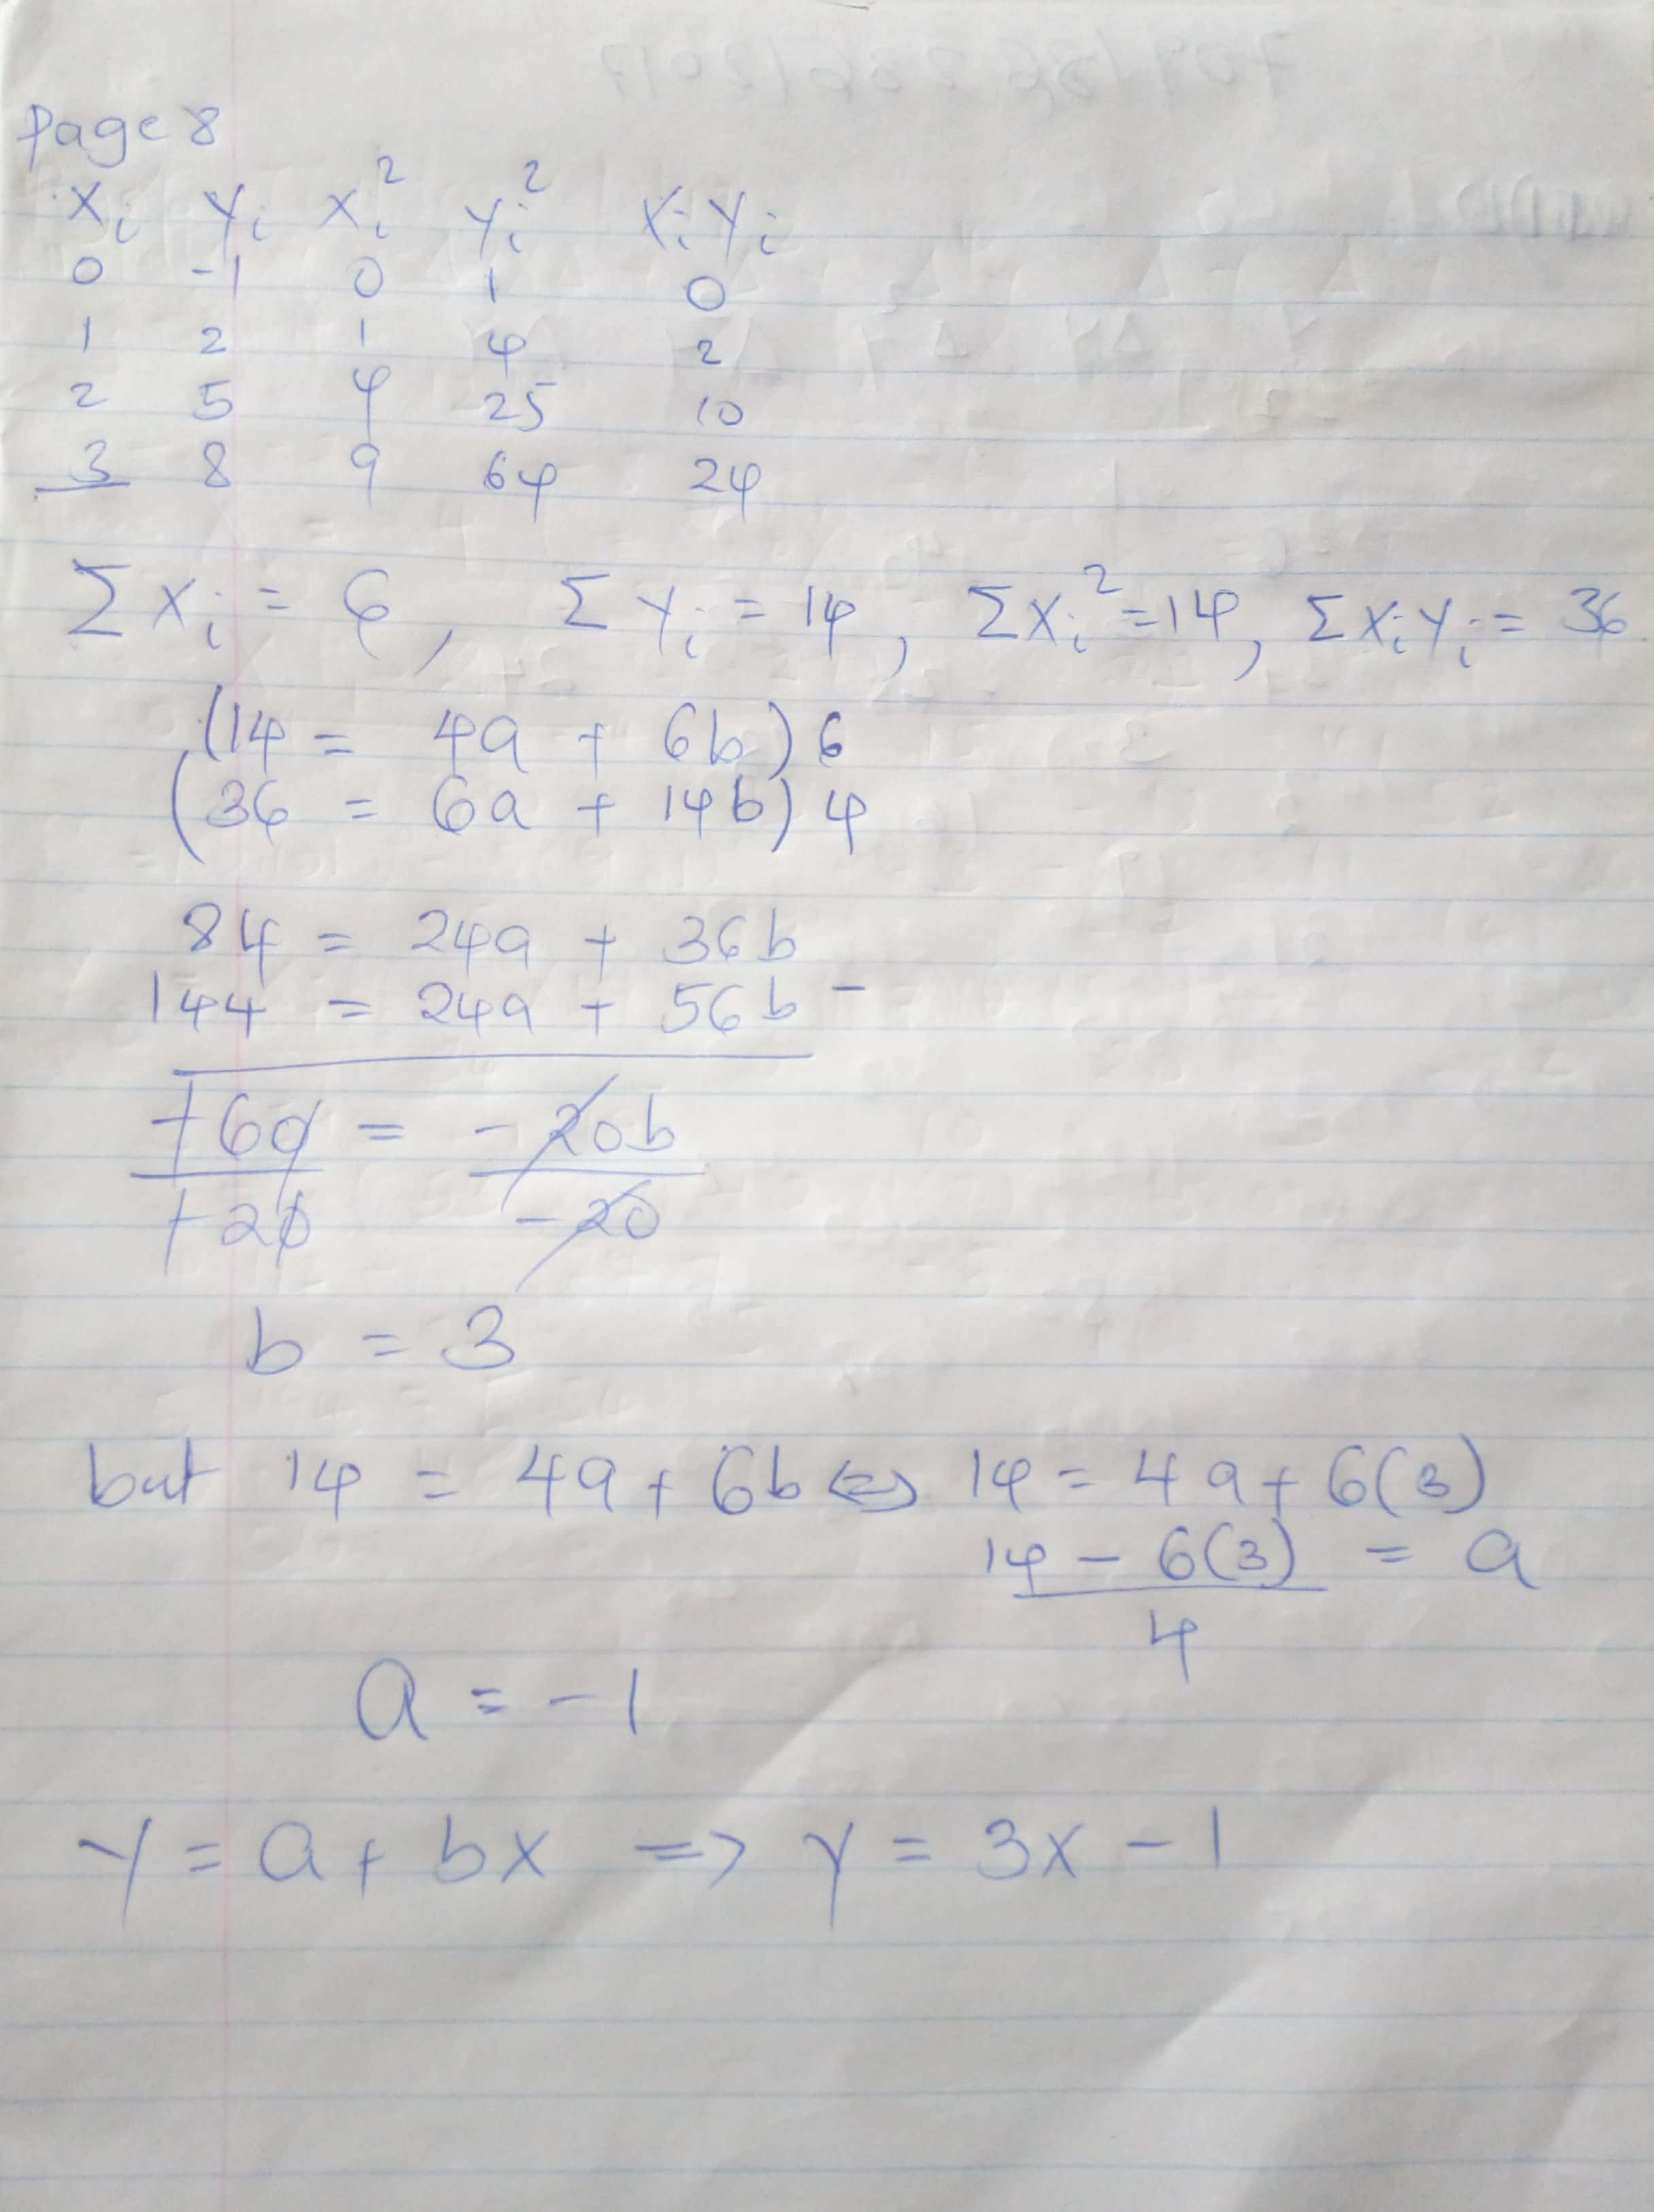 Page 8
Xi Yi Xi² Yi² XiYi
0 -1 0 1 0
1 2 1 4 2
2 5 4 25 10
3 8 9 64 24
ΣXi = 6, ΣYi = 14, ΣXi² = 14, ΣXiYi = 36
(14 = 4a + 6b) 6
(36 = 6a + 14b) 4
84 = 24a + 36b
144 = 24a + 56b -
-60 = -20b
-20 -20
b = 3
but 14 = 4a + 6b ⇔ 14 = 4a + 6(3)
14 - 6(3) = a
4
a = -1
Y = a + bx => Y = 3x - 1